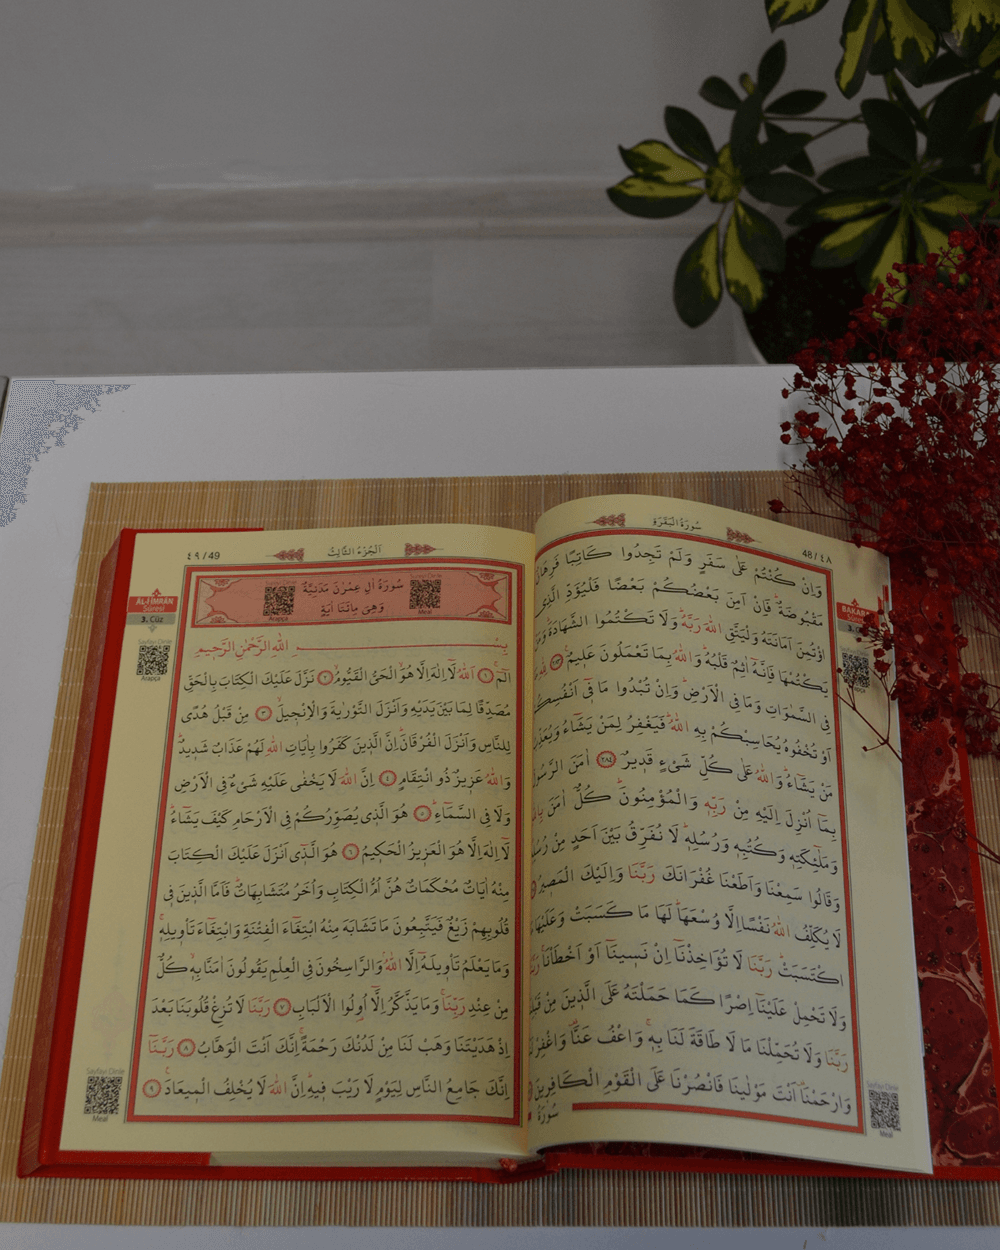 سُورَةُ الْبَقَرَةِ
48/٤٨
وَاِنْ كُنْتُمْ عَلٰى سَفَرٍ وَلَمْ تَجِدُوا كَاتِبًا فَرِهَانٌ
مَقْبُوضَةٌۜ فَاِنْ اَمِنَ بَعْضُكُمْ بَعْضًا فَلْيُؤَدِّ الَّذِي
اؤْتُمِنَ اَمَانَتَهُ وَلْيَتَّقِ اللّٰهَ رَبَّهُۜ وَلَا تَكْتُمُوا الشَّهَادَةَۜ وَمَنْ
يَكْتُمْهَا فَاِنَّهُٓ اٰثِمٌ قَلْبُهُۜ وَاللّٰهُ بِمَا تَعْمَلُونَ عَلِيمٌ ٢٨٣ لِلّٰهِ مَا
فِي السَّمٰوَاتِ وَمَا فِي الْاَرْضِۜ وَاِنْ تُبْدُوا مَا فِٓي اَنْفُسِكُمْ
اَوْ تُخْفُوهُ يُحَاسِبْكُمْ بِهِ اللّٰهُۜ فَيَغْفِرُ لِمَنْ يَشَٓاءُ وَيُعَذِّبُ
مَنْ يَشَٓاءُۜ وَاللّٰهُ عَلٰى كُلِّ شَيْءٍ قَدِيرٌ ٢٨٤ اٰمَنَ الرَّسُولُ
بِمَٓا اُنْزِلَ اِلَيْهِ مِنْ رَبِّهِ وَالْمُؤْمِنُونَۜ كُلٌّ اٰمَنَ بِاللّٰهِ
وَمَلٰٓئِكَتِهِ وَكُتُبِهِ وَرُسُلِهِۜ لَا نُفَرِّقُ بَيْنَ اَحَدٍ مِنْ رُسُلِهِ
وَقَالُوا سَمِعْنَا وَاَطَعْنَا غُفْرَانَكَ رَبَّنَا وَاِلَيْكَ الْمَصِيرُ
لَا يُكَلِّفُ اللّٰهُ نَفْسًا اِلَّا وُسْعَهَاۜ لَهَا مَا كَسَبَتْ وَعَلَيْهَا مَا
اكْتَسَبَتْۜ رَبَّنَا لَا تُؤَاخِذْنَٓا اِنْ نَسِينَٓا اَوْ اَخْطَأْنَاۚ رَبَّنَا
وَلَا تَحْمِلْ عَلَيْنَٓا اِصْرًا كَمَا حَمَلْتَهُ عَلَى الَّذِينَ مِنْ قَبْلِنَاۚ
رَبَّنَا وَلَا تُحَمِّلْنَا مَا لَا طَاقَةَ لَنَا بِهِۚ وَاعْفُ عَنَّا۠ وَاغْفِرْ لَنَا۠
وَارْحَمْنَا۠ اَنْتَ مَوْلٰينَا فَانْصُرْنَا عَلَى الْقَوْمِ الْكَافِرِينَ
سُورَةُ
BAKARA
Arapça
Sayfayı Dinle
Meal
٤٩/49
اَلْجُزْءُ الثَّالِثُ
سُورَةُ اٰلِ عِمْرٰنَ مَدَنِيَّةٌ
وَهِيَ مِائَتَا اٰيَةٍ
Arapça
Meal
بِسْــــمِ اللّٰهِ الرَّحْمٰنِ الرَّحِيمِ
الٓمٓۚ ١ اَللّٰهُ لَٓا اِلٰهَ اِلَّا هُوَۙ الْحَيُّ الْقَيُّومُۜ ٢ نَزَّلَ عَلَيْكَ الْكِتَابَ بِالْحَقِّ
مُصَدِّقًا لِمَا بَيْنَ يَدَيْهِ وَاَنْزَلَ التَّوْرٰيةَ وَالْاِنْجِيلَۙ ٣ مِنْ قَبْلُ هُدًى
لِلنَّاسِ وَاَنْزَلَ الْفُرْقَانَۜ اِنَّ الَّذِينَ كَفَرُوا بِاٰيَاتِ اللّٰهِ لَهُمْ عَذَابٌ شَدِيدٌۜ
وَاللّٰهُ عَزِيزٌ ذُو انْتِقَامٍ ٤ اِنَّ اللّٰهَ لَا يَخْفٰى عَلَيْهِ شَيْءٌ فِي الْاَرْضِ
وَلَا فِي السَّمَٓاءِۜ ٥ هُوَ الَّذِي يُصَوِّرُكُمْ فِي الْاَرْحَامِ كَيْفَ يَشَٓاءُۜ
لَٓا اِلٰهَ اِلَّا هُوَ الْعَزِيزُ الْحَكِيمُ ٦ هُوَ الَّذِٓي اَنْزَلَ عَلَيْكَ الْكِتَابَ
مِنْهُ اٰيَاتٌ مُحْكَمَاتٌ هُنَّ اُمُّ الْكِتَابِ وَاُخَرُ مُتَشَابِهَاتٌۜ فَاَمَّا الَّذِينَ فِي
قُلُوبِهِمْ زَيْغٌ فَيَتَّبِعُونَ مَا تَشَابَهَ مِنْهُ ابْتِغَٓاءَ الْفِتْنَةِ وَابْتِغَٓاءَ تَأْوِيلِهِۚ
وَمَا يَعْلَمُ تَأْوِيلَهُٓ اِلَّا اللّٰهُۢ وَالرَّاسِخُونَ فِي الْعِلْمِ يَقُولُونَ اٰمَنَّا بِهِۙ كُلٌّ
مِنْ عِنْدِ رَبِّنَاۚ وَمَا يَذَّكَّرُ اِلَّٓا اُو۬لُوا الْاَلْبَابِ ٧ رَبَّنَا لَا تُزِغْ قُلُوبَنَا بَعْدَ
اِذْ هَدَيْتَنَا وَهَبْ لَنَا مِنْ لَدُنْكَ رَحْمَةًۚ اِنَّكَ اَنْتَ الْوَهَّابُ ٨ رَبَّنَٓا
اِنَّكَ جَامِعُ النَّاسِ لِيَوْمٍ لَا رَيْبَ فِيهِۜ اِنَّ اللّٰهَ لَا يُخْلِفُ الْمِيعَادَ۟ ٩
AL-İ İMRAN
Suresi
3. Cüz
Sayfayı Dinle
Arapça
Sayfayı Dinle
Meal